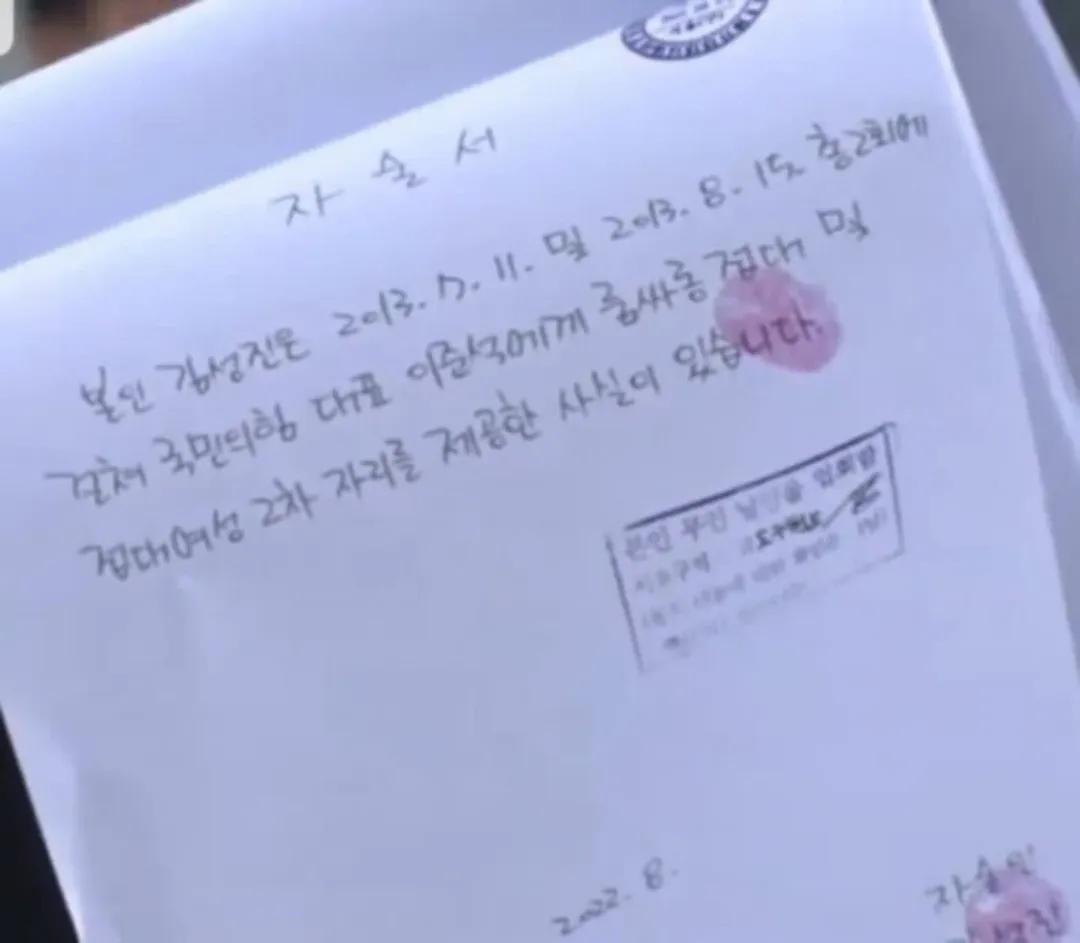 자 술 서
본인 김성진은 2013. 7. 11. 및 2013. 8. 15. 총 2회에
걸쳐 국민의힘 대표 이준석에게 룸싸롱 접대 및
접대여성 2차 자리를 제공한 사실이 있습니다.
본인 무인 날인을 입회함
2022. 8.
자술인